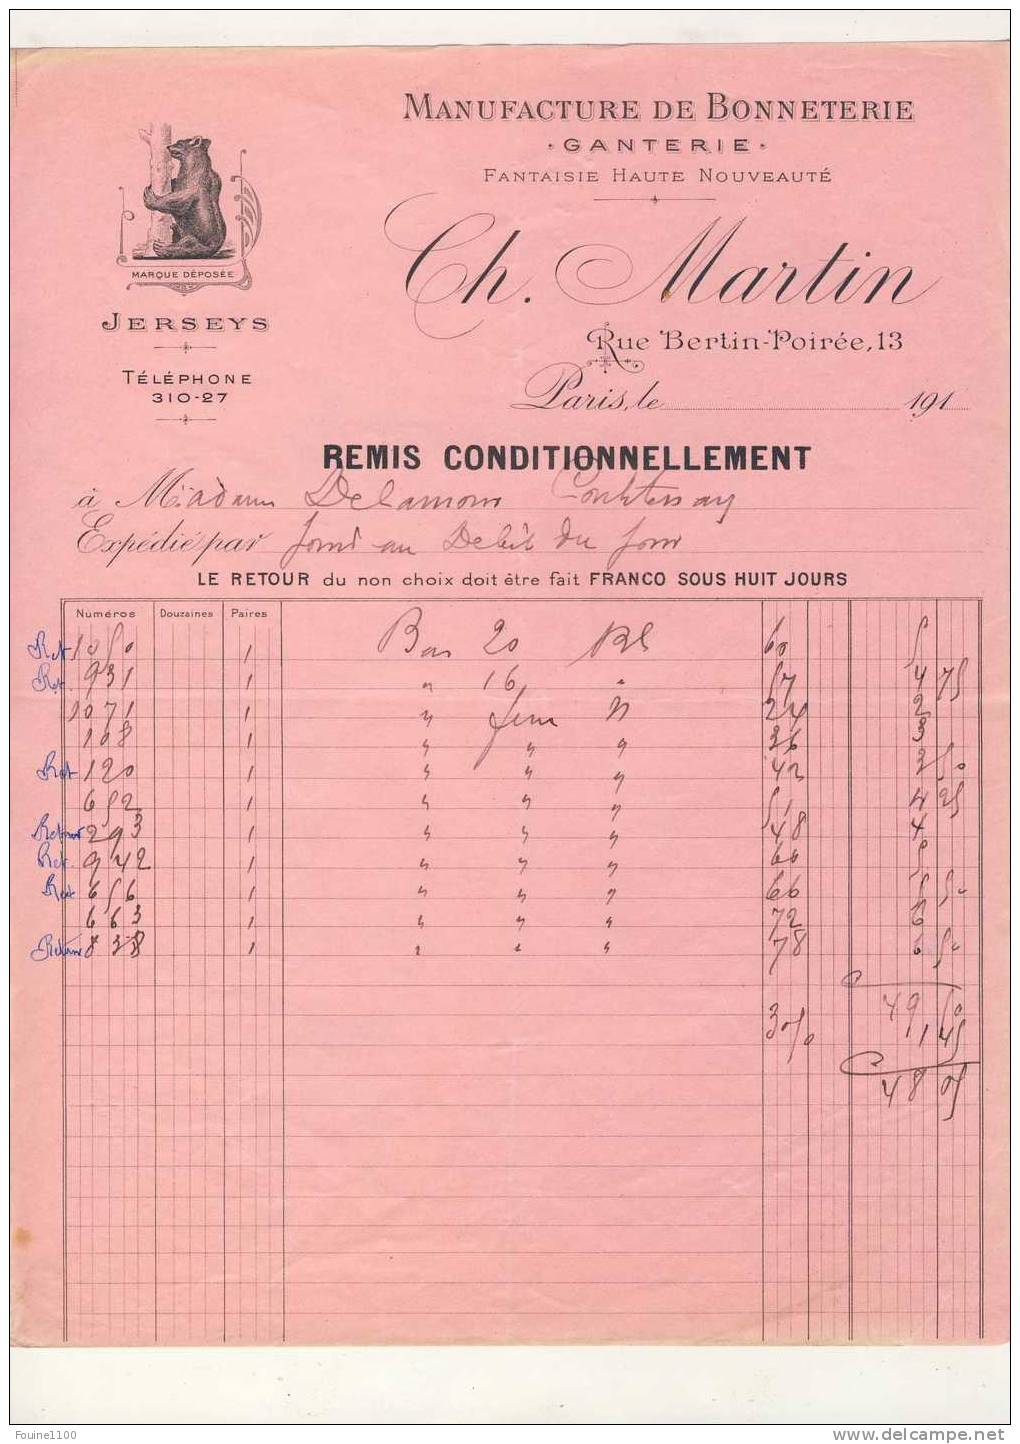 MANUFACTURE DE BONNETERIE
· GANTERIE ·
FANTAISIE HAUTE NOUVEAUTÉ
Ch. Martin
Rue Bertin-Poirée, 13
Paris, le 191
MARQUE DÉPOSÉE
JERSEYS
TÉLÉPHONE
310-27
REMIS CONDITIONNELLEMENT
à Madame Delamour
Expédié par joint au Debit du jour
LE RETOUR du non choix doit être fait FRANCO SOUS HUIT JOURS
Numéros Douzaines Paires
Ret 1050 1 Bas 20 60 5
Ret. 931 1 " 16 " 57 4 75
1071 1 " N 24 2
108 1 " " " 36 3
Ret 120 1 " " " 42 3 50
652 1 " " " 51 4 25
Retour 293 1 " " " 48 4
Ret. 942 1 " " " 60 5
Ret 656 1 " " " 66 5 50
663 1 " " " 72 6
Retour 838 1 " " " 78 6 50
49 50
3 % 1 45
48 05
Founie1100
www.delcampe.net